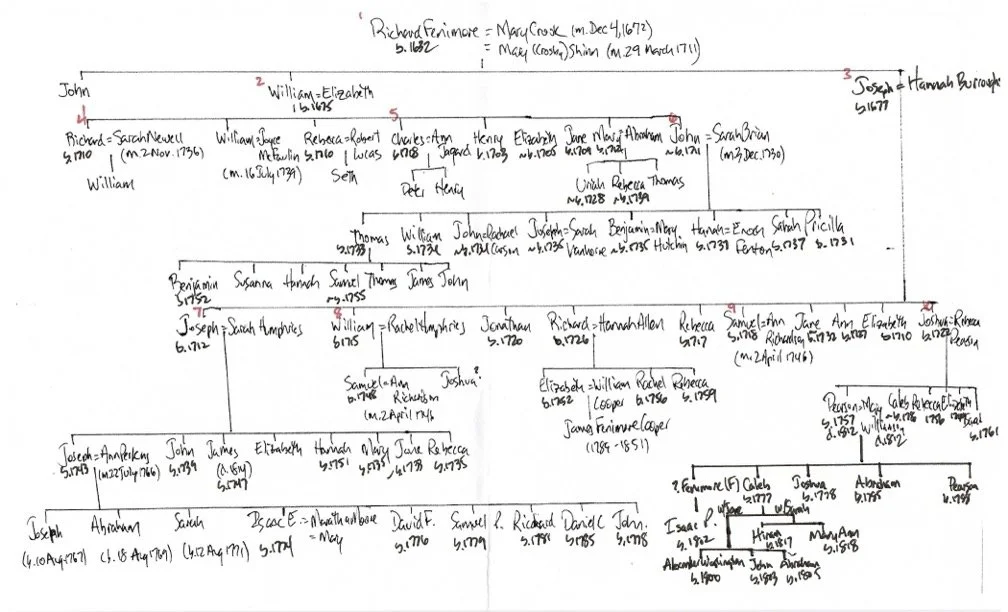 1
Richard Fenimore = Mary Crosk (m. Dec 4, 1672)
b. 1632 = Mary (Crosby) Shinn (m. 29 March 1711)
John 2 William = Elizabeth 3 Joseph = Hannah Burroughs
b. 1675 b. 1677
4 5 6
Richard = Sarah Newell William = Joyce Rebeca = Robert Charles = Ann Henry Elizabeth Jane Mary = Abraham John = Sarah Brian
b. 1710 (m. 2 Nov. 1736) McFowlin b. 1710 Lucas b. 1708 Jagard b. 1703 ~b. 1705 b. 1709 ~b. 1711 (m. 3 Dec. 1730)
William (m. 16 July 1739) Seth
Peter Henry Uriah Rebecca Thomas
~b. 1728 ~b. 1739
Thomas William John = Rachael Joseph = Sarah Benjamin = Mary Hannah = Enosh Sarah Pricilla
b. 1733 b. 1734 ~b. 1734 Carson ~b. 1735 Vanhorne ~b. 1735 Hutchin b. 1737 Fenton b. 1737 b. 1731
Benjamin Susanna Hannah Samuel Thomas James John
b. 1752 ~b. 1755
7 8 9
Joseph = Sarah Humphries William = Rachel Humphries Jonathan Richard = Hannah Allen Rebecca Samuel = Ann Jane Ann Elizabeth Joshua = Rebeca
b. 1712 b. 1715 b. 1720 b. 1726 b. 1717 b. 1718 Richardson b. 1732 b. 1710 b. 1722 Pearson
(m. 2 April 1746)
Samuel = Ann Joshua?
b. 1748 Richardson
(m. 2 April 1746
Elizabeth = William Rachel Rebecca
b. 1752 Cooper b. 1756 b. 1759
James Fenimore Cooper
(1789-1851)
Pearson = Mary Caleb Rebecca Elizabeth
b. 1757 Williams 1756
d. 1812 d. 1812 b. 1761
Joseph = Ann Perkins John James Elizabeth Hannah Mary Jane Rebecca
b. 1743 (m. 22 July 1766) b. 1739 (d. 1814) b. 1751 b. 1735 b. 1733 b. 1735
b. 1747
? Fenimore (F) Caleb Joshua Abraham Pearson
b. 1777 b. 1778
Isaac P. w/Jane w/Sarah
b. 1802 Hiram Mary Ann
b. 1817 b. 1818
Alexander Washington John Abraham
b. 1800 b. 1803 b. 1805
Joseph Abraham Sarah Isaac E. = Martha Moore David F. Samuel P. Richard Daniel C John.
(b. 10 Aug. 1767) (b. 18 Aug 1769) (b. 12 Aug 1771) b. 1774 = May b. 1776 b. 1779 b. 1781 b. 1785 b. 1778